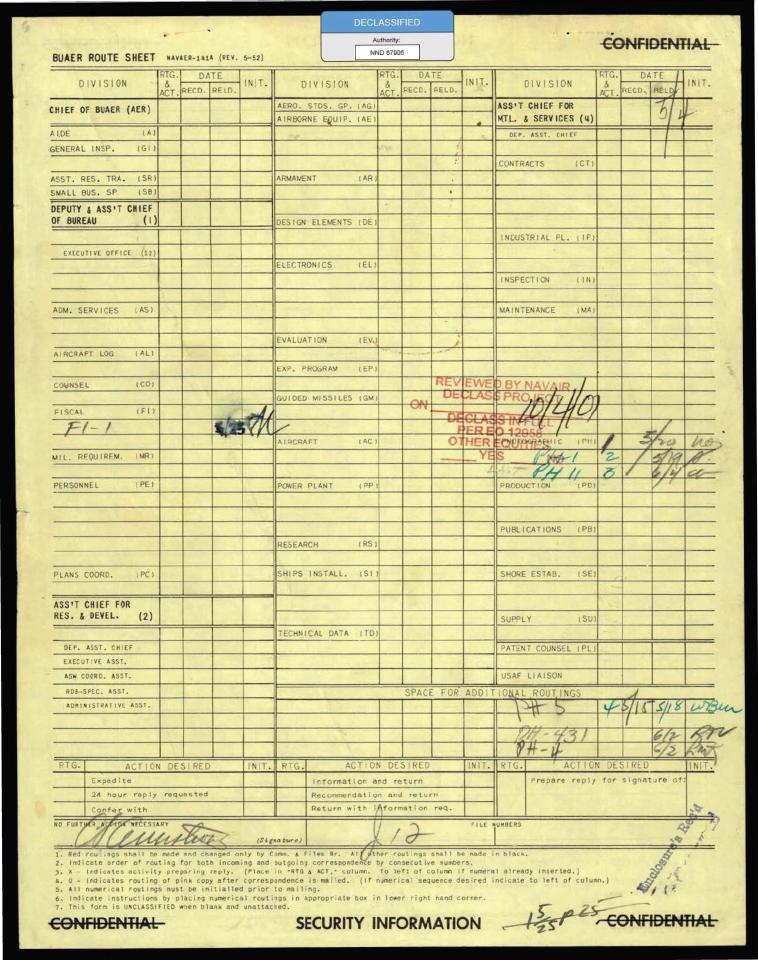 DECLASSIFIED
Authority:
NND 67905
CONFIDENTIAL
BUAER ROUTE SHEET NAVAER-141A (REV. 5-52)
DIVISION RTG. & ACT. DATE RECD. RELD. INIT.
CHIEF OF BUAER (AER)
AIDE (A)
GENERAL INSP. (GI)
ASST. RES. TRA. (SR)
SMALL BUS. SP (SB)
DEPUTY & ASS'T CHIEF
OF BUREAU (1)
EXECUTIVE OFFICE (12)
ADM. SERVICES (AS)
AIRCRAFT LOG (AL)
COUNSEL (CO)
FISCAL (FI)
FI-1 5/25
MIL. REQUIREM. (MR)
PERSONNEL (PE)
PLANS COORD. (PC)
ASS'T CHIEF FOR
RES. & DEVEL. (2)
DEP. ASST. CHIEF
EXECUTIVE ASST.
ASW COORD. ASST.
RDB-SPEC. ASST.
ADMINISTRATIVE ASST.
DIVISION RTG. & ACT. DATE RECD. RELD. INIT.
AERO. STDS. GP. (AG)
AIRBORNE EQUIP. (AE)
ARMAMENT (AR)
DESIGN ELEMENTS (DE)
ELECTRONICS (EL)
EVALUATION (EV)
EXP. PROGRAM (EP)
GUIDED MISSILES (GM)
AIRCRAFT (AC)
POWER PLANT (PP)
RESEARCH (RS)
SHIPS INSTALL. (SI)
TECHNICAL DATA (TD)
REVIEWED BY NAVAIR
DECLASS PROJECT
ON 10/4/01
DECLASS IN FULL
PER EO 12958
OTHER EQUITIES
YES
DIVISION RTG. & ACT. DATE RECD. RELD. INIT.
ASS'T CHIEF FOR
MTL. & SERVICES (4) 5/4
DEP. ASST. CHIEF
CONTRACTS (CT)
INDUSTRIAL PL. (IP)
INSPECTION (IN)
MAINTENANCE (MA)
PHOTOGRAPHIC (PH) 1 5/20
PH-1 2 5/19
PH 11 3 6/4
PRODUCTION (PD)
PUBLICATIONS (PB)
SHORE ESTAB. (SE)
SUPPLY (SU)
PATENT COUNSEL (PL)
USAF LIAISON
SPACE FOR ADDITIONAL ROUTINGS
PH-5 4 5/15 5/18
PH-431 6/2
PH-4 6/2
RTG. ACTION DESIRED INIT. RTG. ACTION DESIRED INIT. RTG. ACTION DESIRED INIT.
Expedite Information and return Prepare reply for signature of:
24 hour reply requested Recommendation and return
Confer with Return with information req.
NO FURTHER ACTION NECESSARY
(Signature)
12
FILE NUMBERS
Enclosure's Rec'd
1. Red routings shall be made and changed only by Comm. & Files Br. All other routings shall be made in black.
2. Indicate order of routing for both incoming and outgoing correspondence by consecutive numbers.
3. X - Indicates activity preparing reply. (Place in "RTG & ACT," column. To left of column if numeral already inserted.)
4. O - Indicates routing of pink copy after correspondence is mailed. (If numerical sequence desired indicate to left of column.)
5. All numerical routings must be initialled prior to mailing.
6. Indicate instructions by placing numerical routings in appropriate box in lower right hand corner.
7. This form is UNCLASSIFIED when blank and unattached.
CONFIDENTIAL SECURITY INFORMATION CONFIDENTIAL